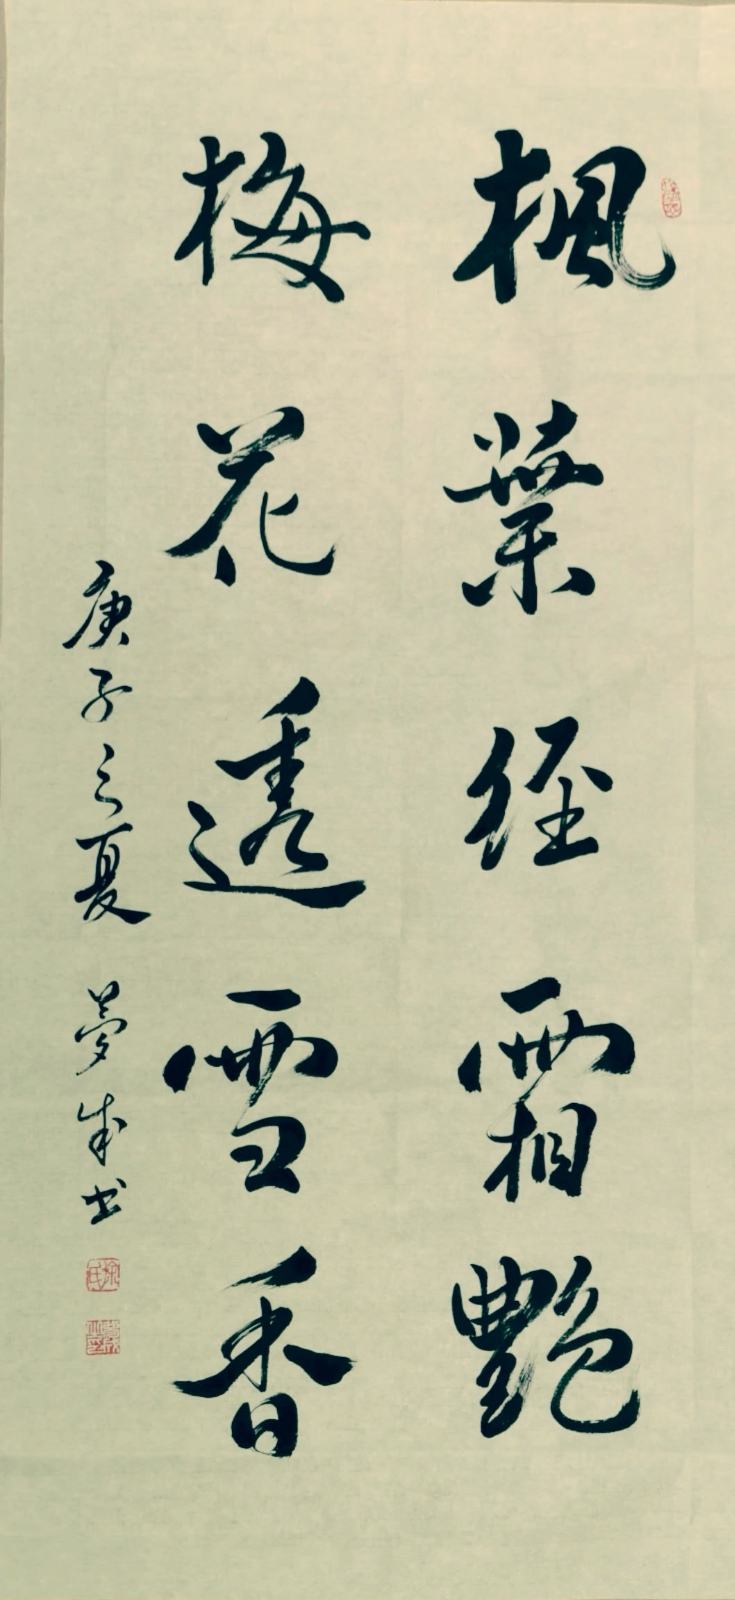 楓葉经霜艷
梅花透雪香
庚子之夏 夢成书